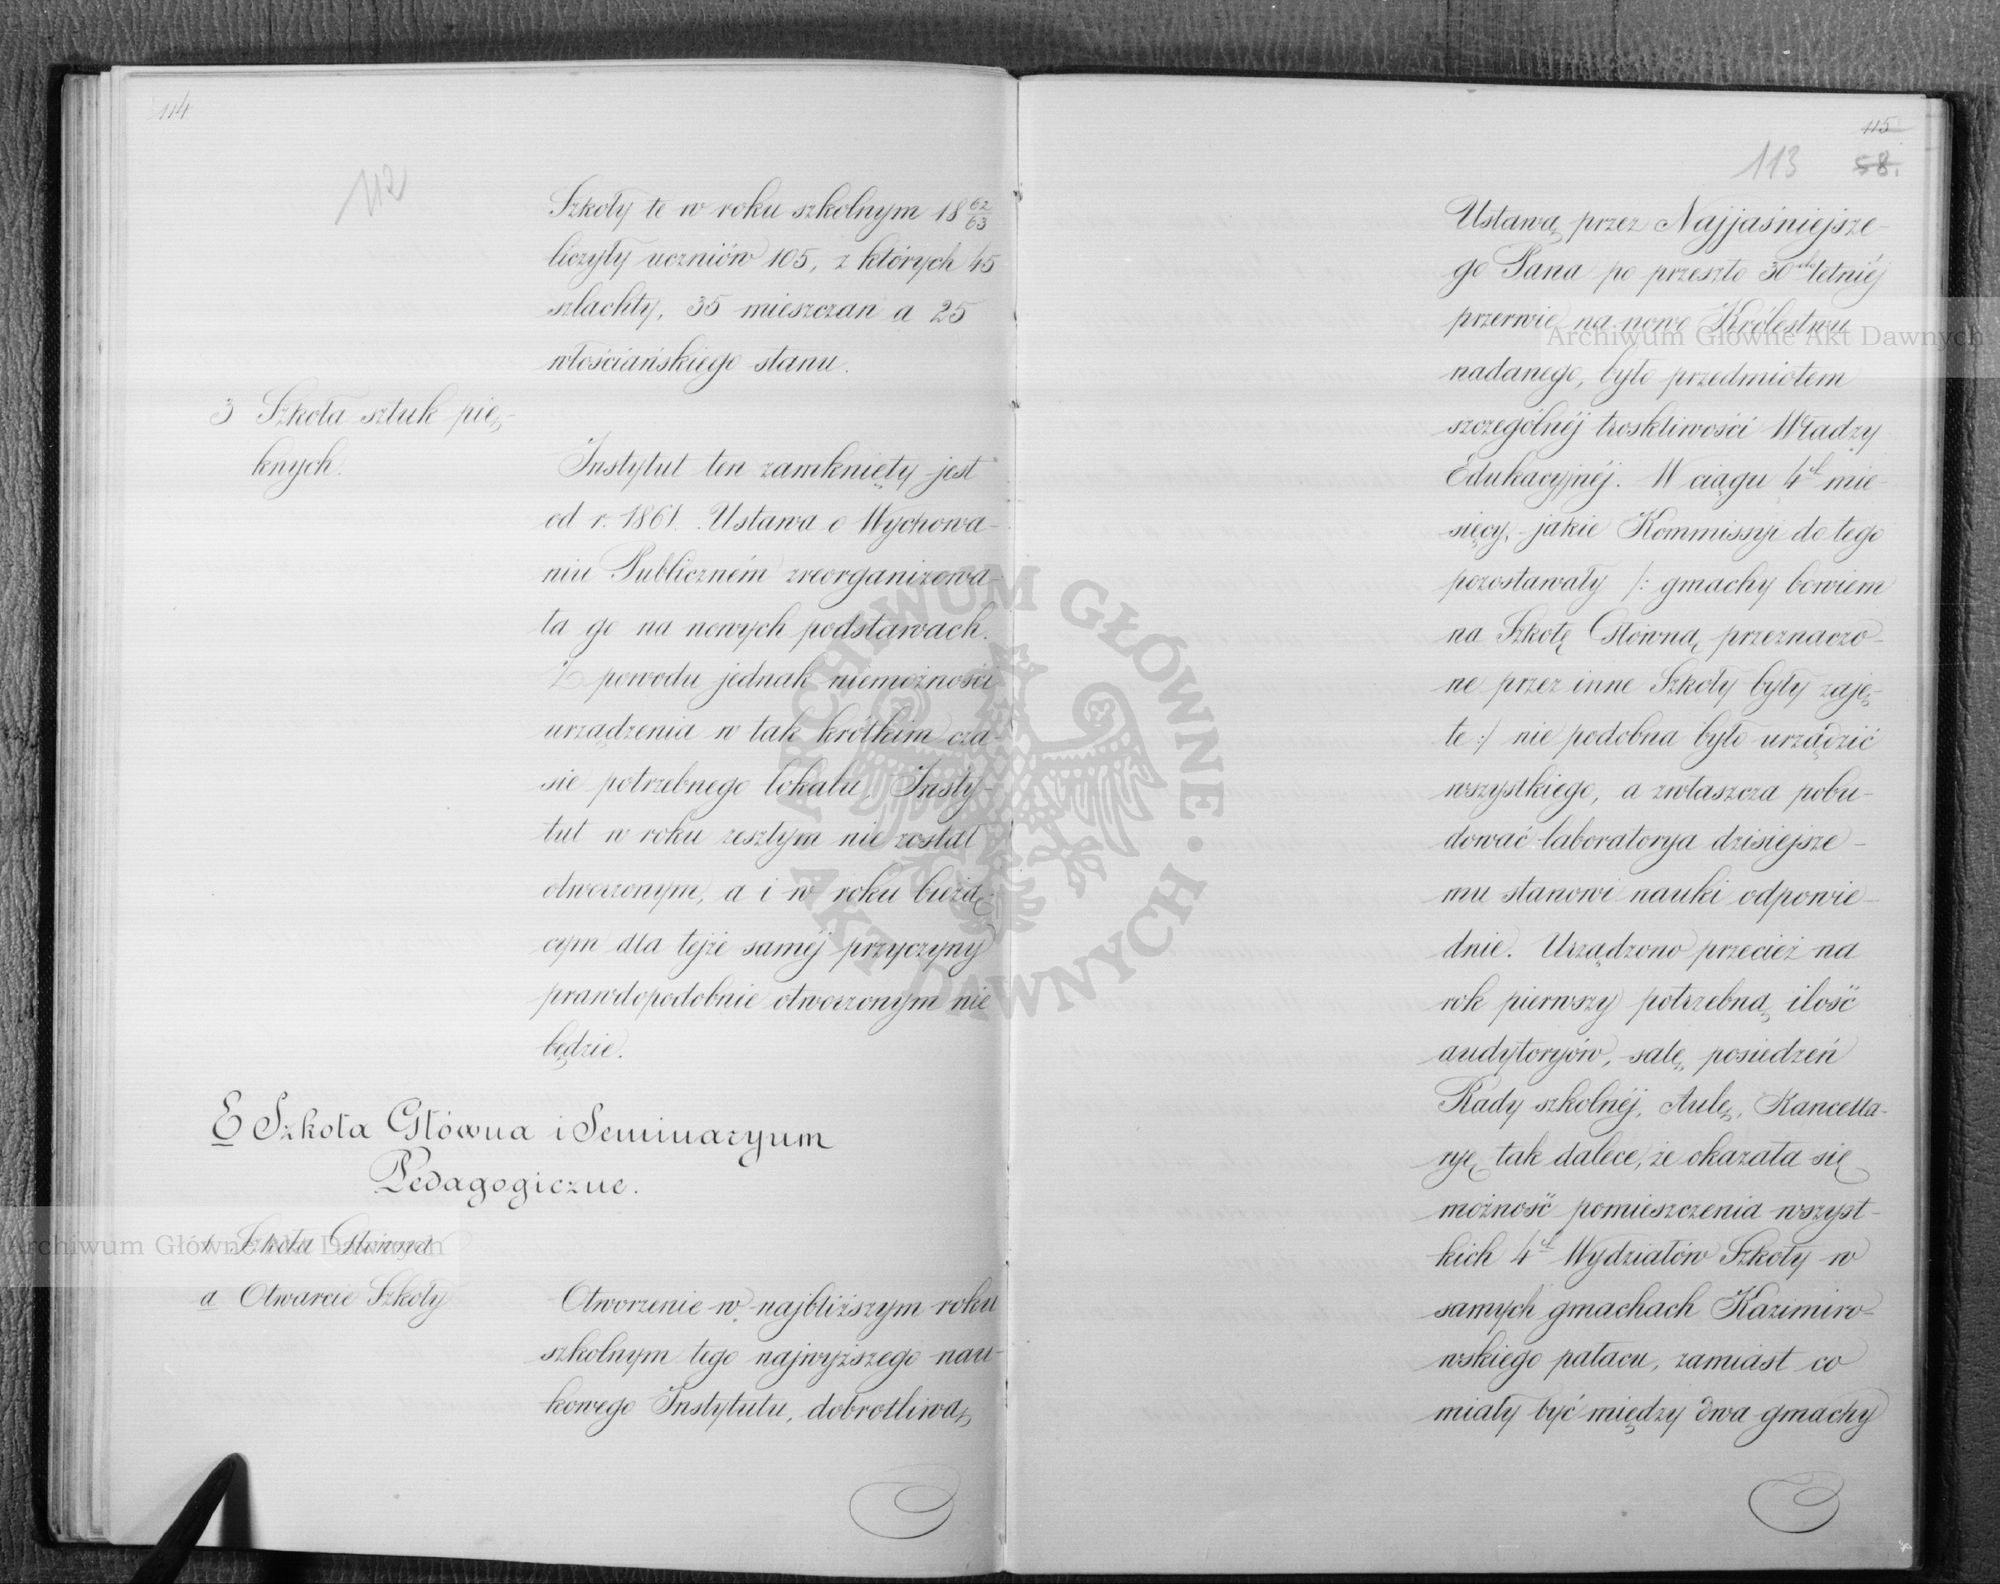 114
112
Szkoły te w roku szkolnym 18 62/63
liczyły uczniów 105, z których 45
szlachty, 35 mieszczan a 25
włościańskiego stanu.
3 Szkoła sztuk pię-
knych.
Instytut ten zamknięty jest
od r. 1861. Ustawa o Wychowa-
niu Publiczném zreorganizowa-
ła go na nowych podstawach.
Z powodu jednak niemożności
urządzenia w tak krótkim cza-
sie potrzebnego lokalu, Insty-
tut w roku zeszłym nie został
otworzonym, a i w roku bieżą-
cym dla tejże saméj przyczyny
prawdopodobnie otworzonym nie
będzie.
E Szkoła Główna i Seminaryum
Pedagogiczne.
1 Szkoła Główna
a Otwarcie Szkoły
Otworzenie w najbliższym roku
szkolnym tego najwyższego nau-
kowego Instytutu, dobrotliwą
115
113 58.
Ustawą przez Najjaśniejsze-
go Pana po przeszło 30sto letniéj
przerwie na nowo Królestwu
nadanego, było przedmiotem
szczególnéj troskliwości Władzy
Edukacyjnéj. W ciągu 4ch mie-
sięcy, jakie Kommissyi do tego
pozostawały /: gmachy bowiem
na Szkołę Główną przeznaczo-
ne przez inne Szkoły były zaję-
te :/ nie podobna było urządzić
wszystkiego, a zwłaszcza pobu-
dować laboratorya dzisiejsze-
mu stanowi nauki odpowie-
dnie. Urządzono przecież na
rok pierwszy potrzebną ilość
audytoryów, salę posiedzeń
Rady szkolnéj, Aulę, Kancella-
ryę tak dalece, że okazała się
możność pomieszczenia wszyst-
kich 4ch Wydziałów Szkoły w
samych gmachach Kazimiro-
wskiego pałacu, zamiast co
miały być między dwa gmachy
Archiwum Główne Akt Dawnych
ARCHIWUM GŁÓWNE · AKT DAWNYCH ·
Archiwum Główne Akt Dawnych